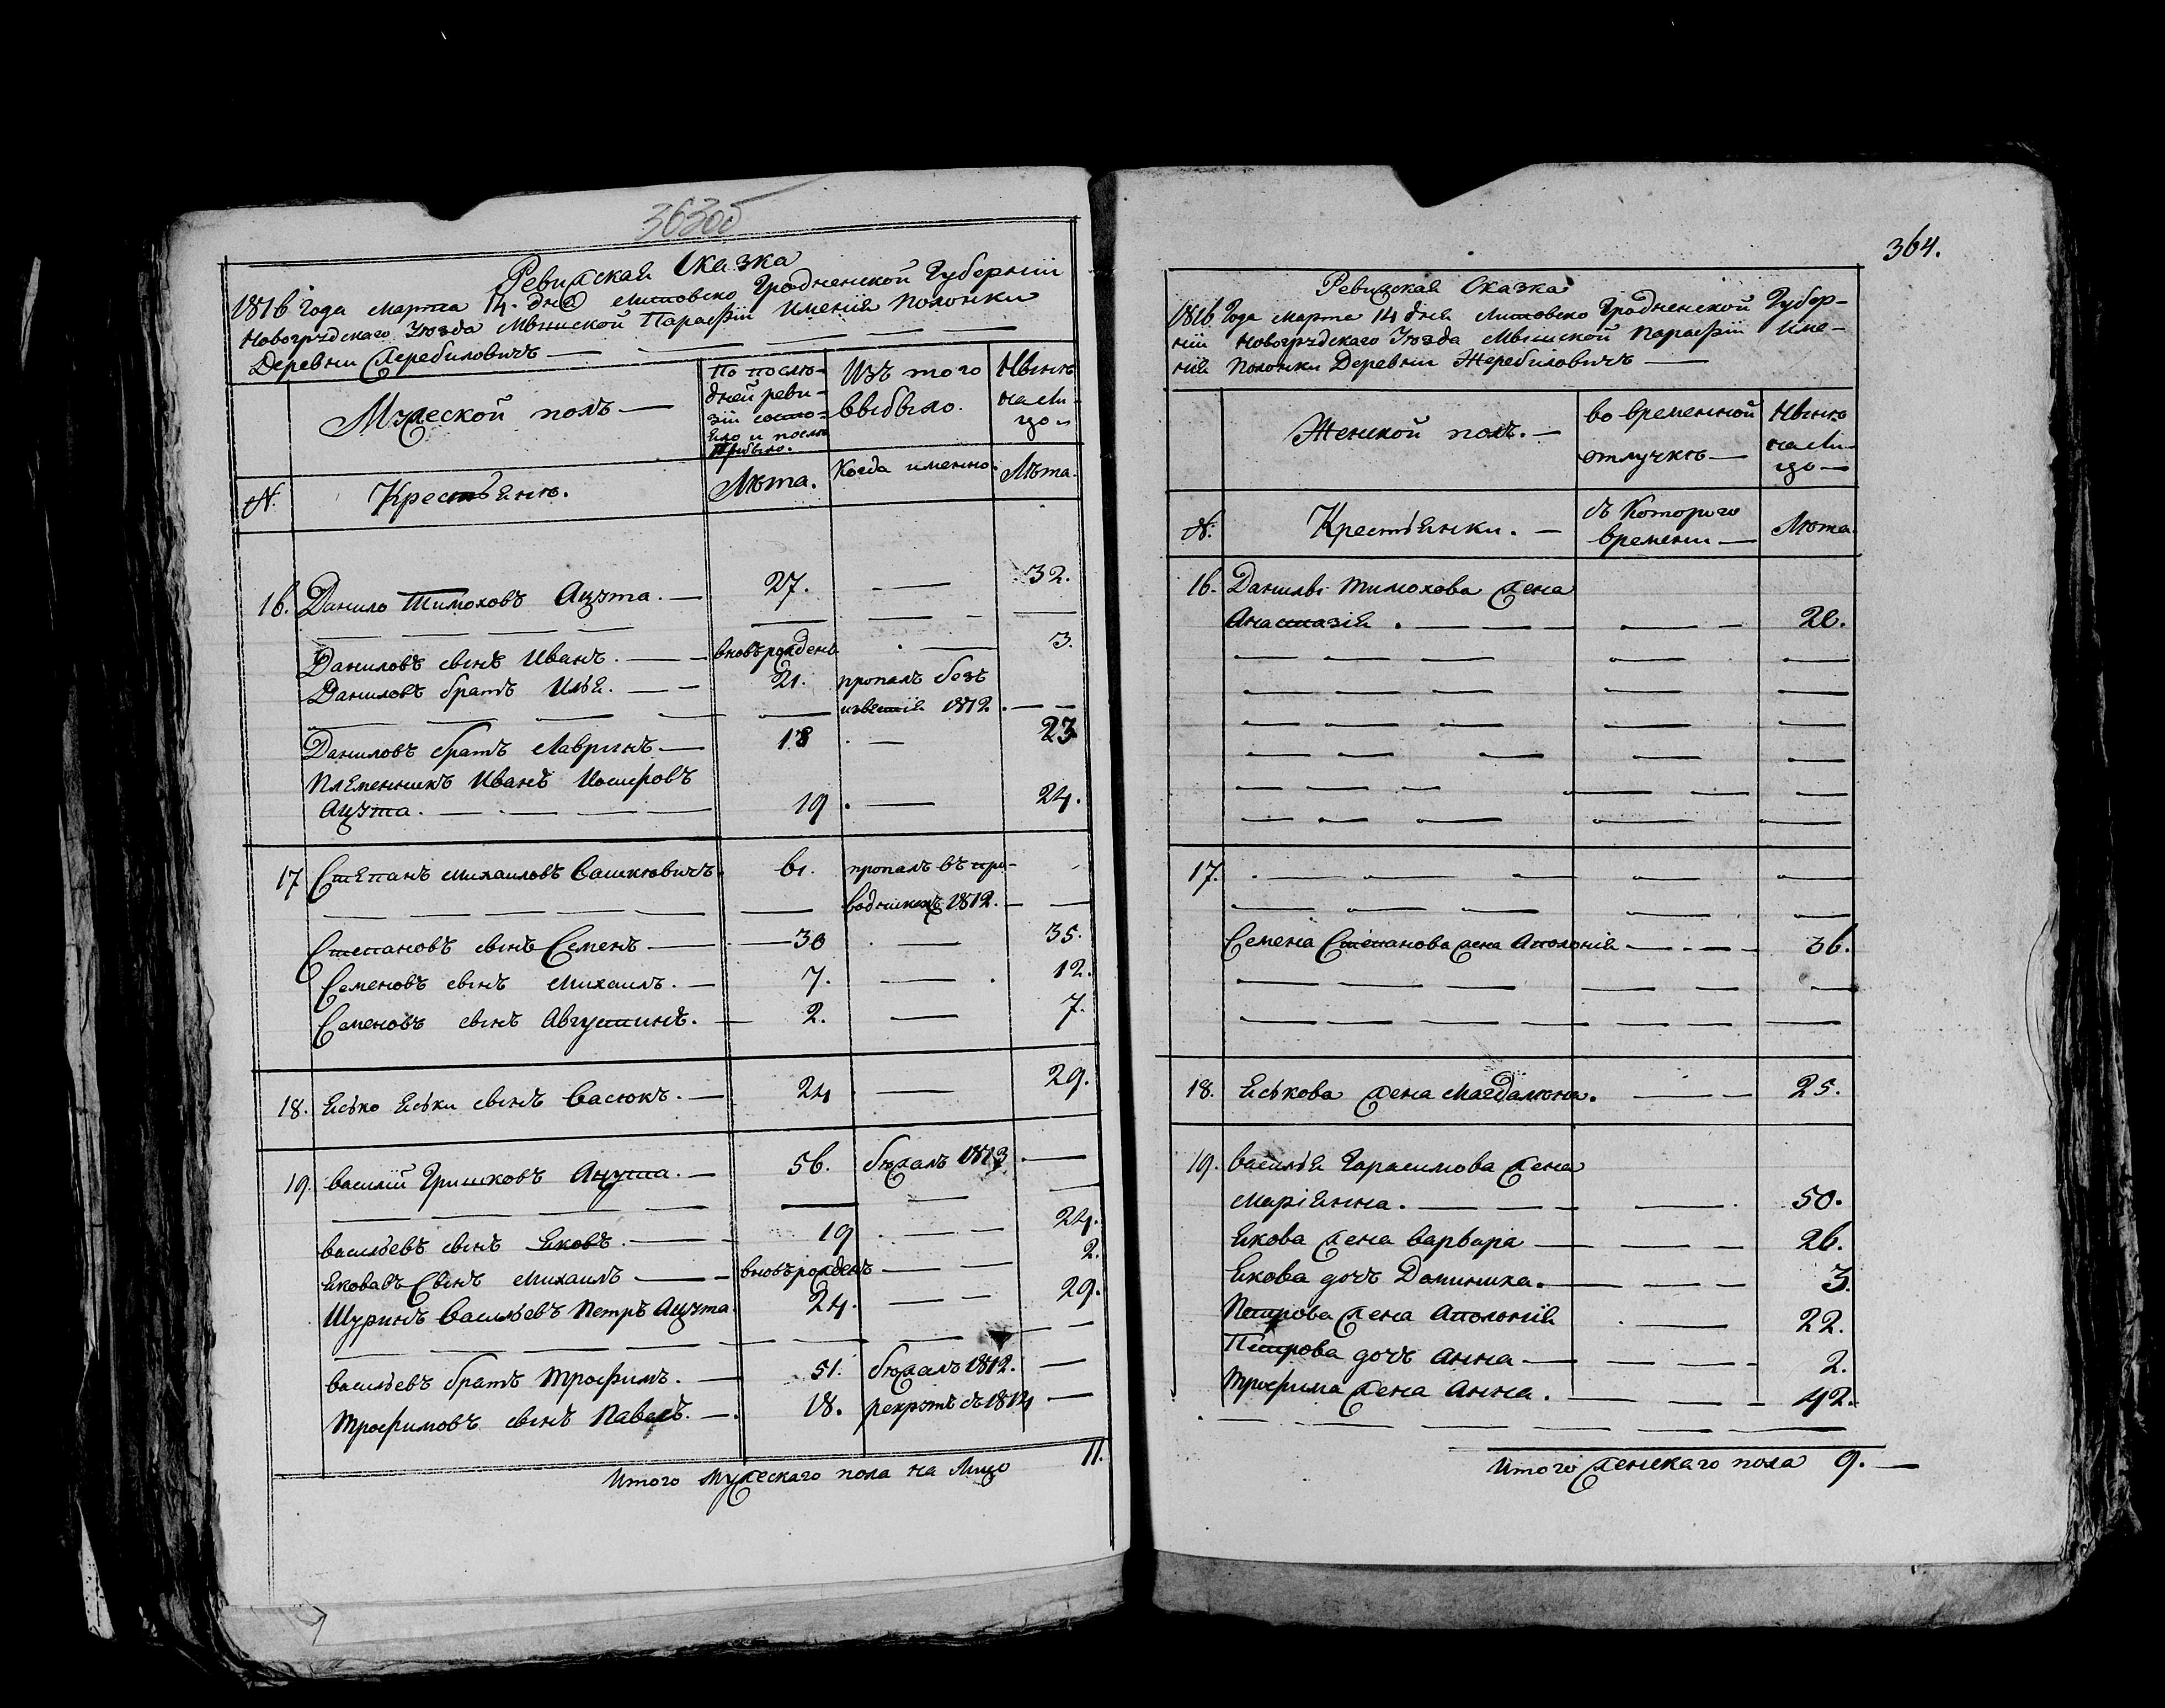 363об
Ревижская Сказка
1816 Года Марта 14. дня Литовско Гродненской Губерніи
Новогрудскаго Уѣзда Мышской Парафіи Имения Полонки
Деревни Жеребиловичъ —
Мужеской полъ —
По послѣ-
дней реви-
зіи состо-
яло и послѣ
прибыло.
Изъ того
выбыло.
Нынѣ
на ли-
цо —
№.
Крестьяне.
Лѣта.
Когда именно.
Лѣта.
16. Данило Тимоховъ Ацута. — 27. — 32.
Даниловъ сынъ Иванъ. — вновърожденъ — 3.
Даниловъ братъ Илья. — 21. пропалъ безъ
извѣстія 1812. —
Даниловъ братъ Лавринъ — 18 — 23
Племенникъ Иванъ Іосифовъ
Ацута. — 19. — 24.
17 Степанъ Михаиловъ Сашкювичъ. 61. пропалъ въ про-
водникахъ 1812. —
Степановъ сынъ Семенъ — 30 — 35.
Семеновъ сынъ Михаилъ. — 7. — 12.
Семеновъ сынъ Августинъ. — 2. — 7.
18. Есько Еськи сынъ Васюкъ. — 24 — 29.
19. Василій Гришковъ Ацута. — 56. бѣжалъ 1813. —
Васильевъ сынъ Яковъ. — 19. — 24.
Яковавъ Сынъ Михаилъ — вновърожденъ — 2.
Шуринъ Васильевъ Петръ Ацута. 24. — 29.
Васильевъ братъ Трофимъ. — 51. бѣжалъ 1812. —
Трофимовъ сынъ Павелъ. — 18. рекрутъ съ 1814 —
Итого Мужескаго пола на Лицо 11.
364.
Ревижская Сказка
1816 Года Марта 14 дня Литовско Гродненской Губер-
ніи Новогрудскаго Уѣзда Мышской Парафіи Име-
нія Полонки Деревни Жеребиловичъ —
Женской полъ. —
во временной
отлучкѣ —
Нынѣ
на ли-
цо —
№.
Крестьянки. —
съ Которого
времени —
Лѣта.
16. Данилы Тимохова жена
Анастазія. — 20.
17. —
Семена Степанова жена Аполонія — 36.
18. Еськова жена Магдалена. — 25.
19. Василья Гарасимова жена
Маріянна. — 50.
Якова жена Варвара — 26.
Якова дочъ Доминика. — 3.
Петрова жена Аполонія — 22.
Петрова дочъ Анна — 2.
Трофима жена Анна. — 42.
Итого женскаго пола 9. —